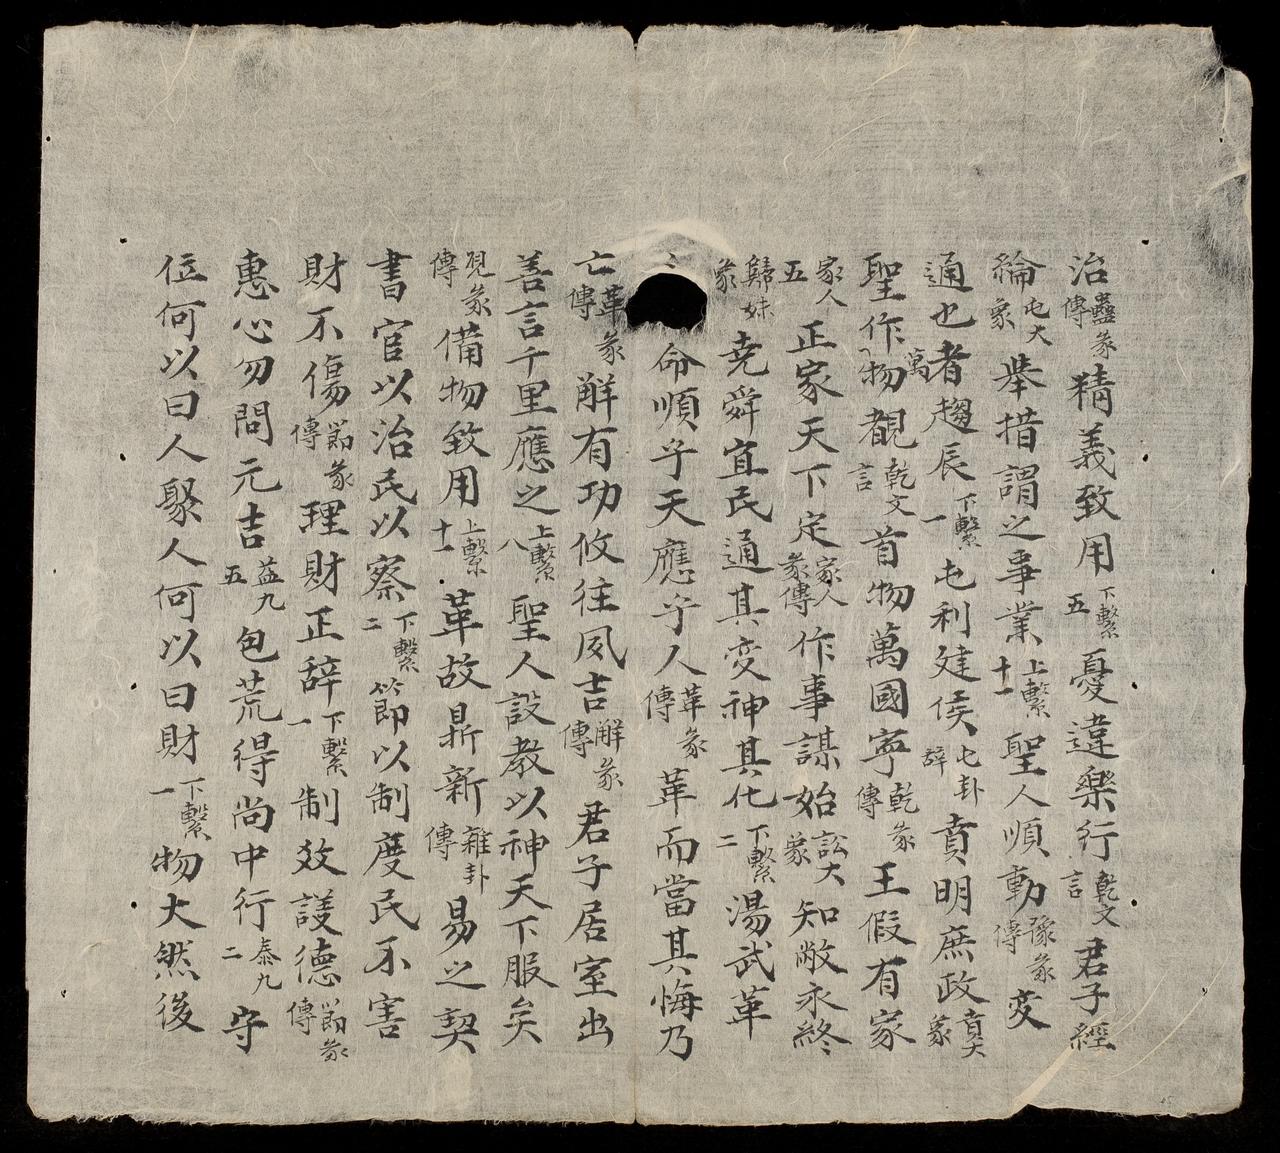 治蠱彖傳精義致用下繫五憂違樂行乾文言君子經
綸屯大象舉措謂之事業上繫十一聖人順動豫彖傳変
通也者趨辰下繫一屯利建侯屯卦辭賁明庶政賁大象
聖作萬物覩乾文言首物萬國寧乾彖傳王假有家
家人五正家天下定家人彖傳作事謀始訟大象知敝永終
歸妹象堯舜宜民通其変神其化下繫二湯武革
命順乎天應乎人革彖傳革而當其悔乃
亡革彖傳解有功攸往夙吉解彖傳君子居室出
善言千里應之上繫八聖人設教以神天下服矣
观彖傳備物致用上繫十一革故鼎新雜卦傳易之契
書官以治民以察下繫二節以制度民不害
財不傷節彖傳理財正辞下繫一制数議德節象傳
惠心勿問元吉益九五包荒得尚中行泰九二守
位何以曰人聚人何以曰財下繫一物大然後